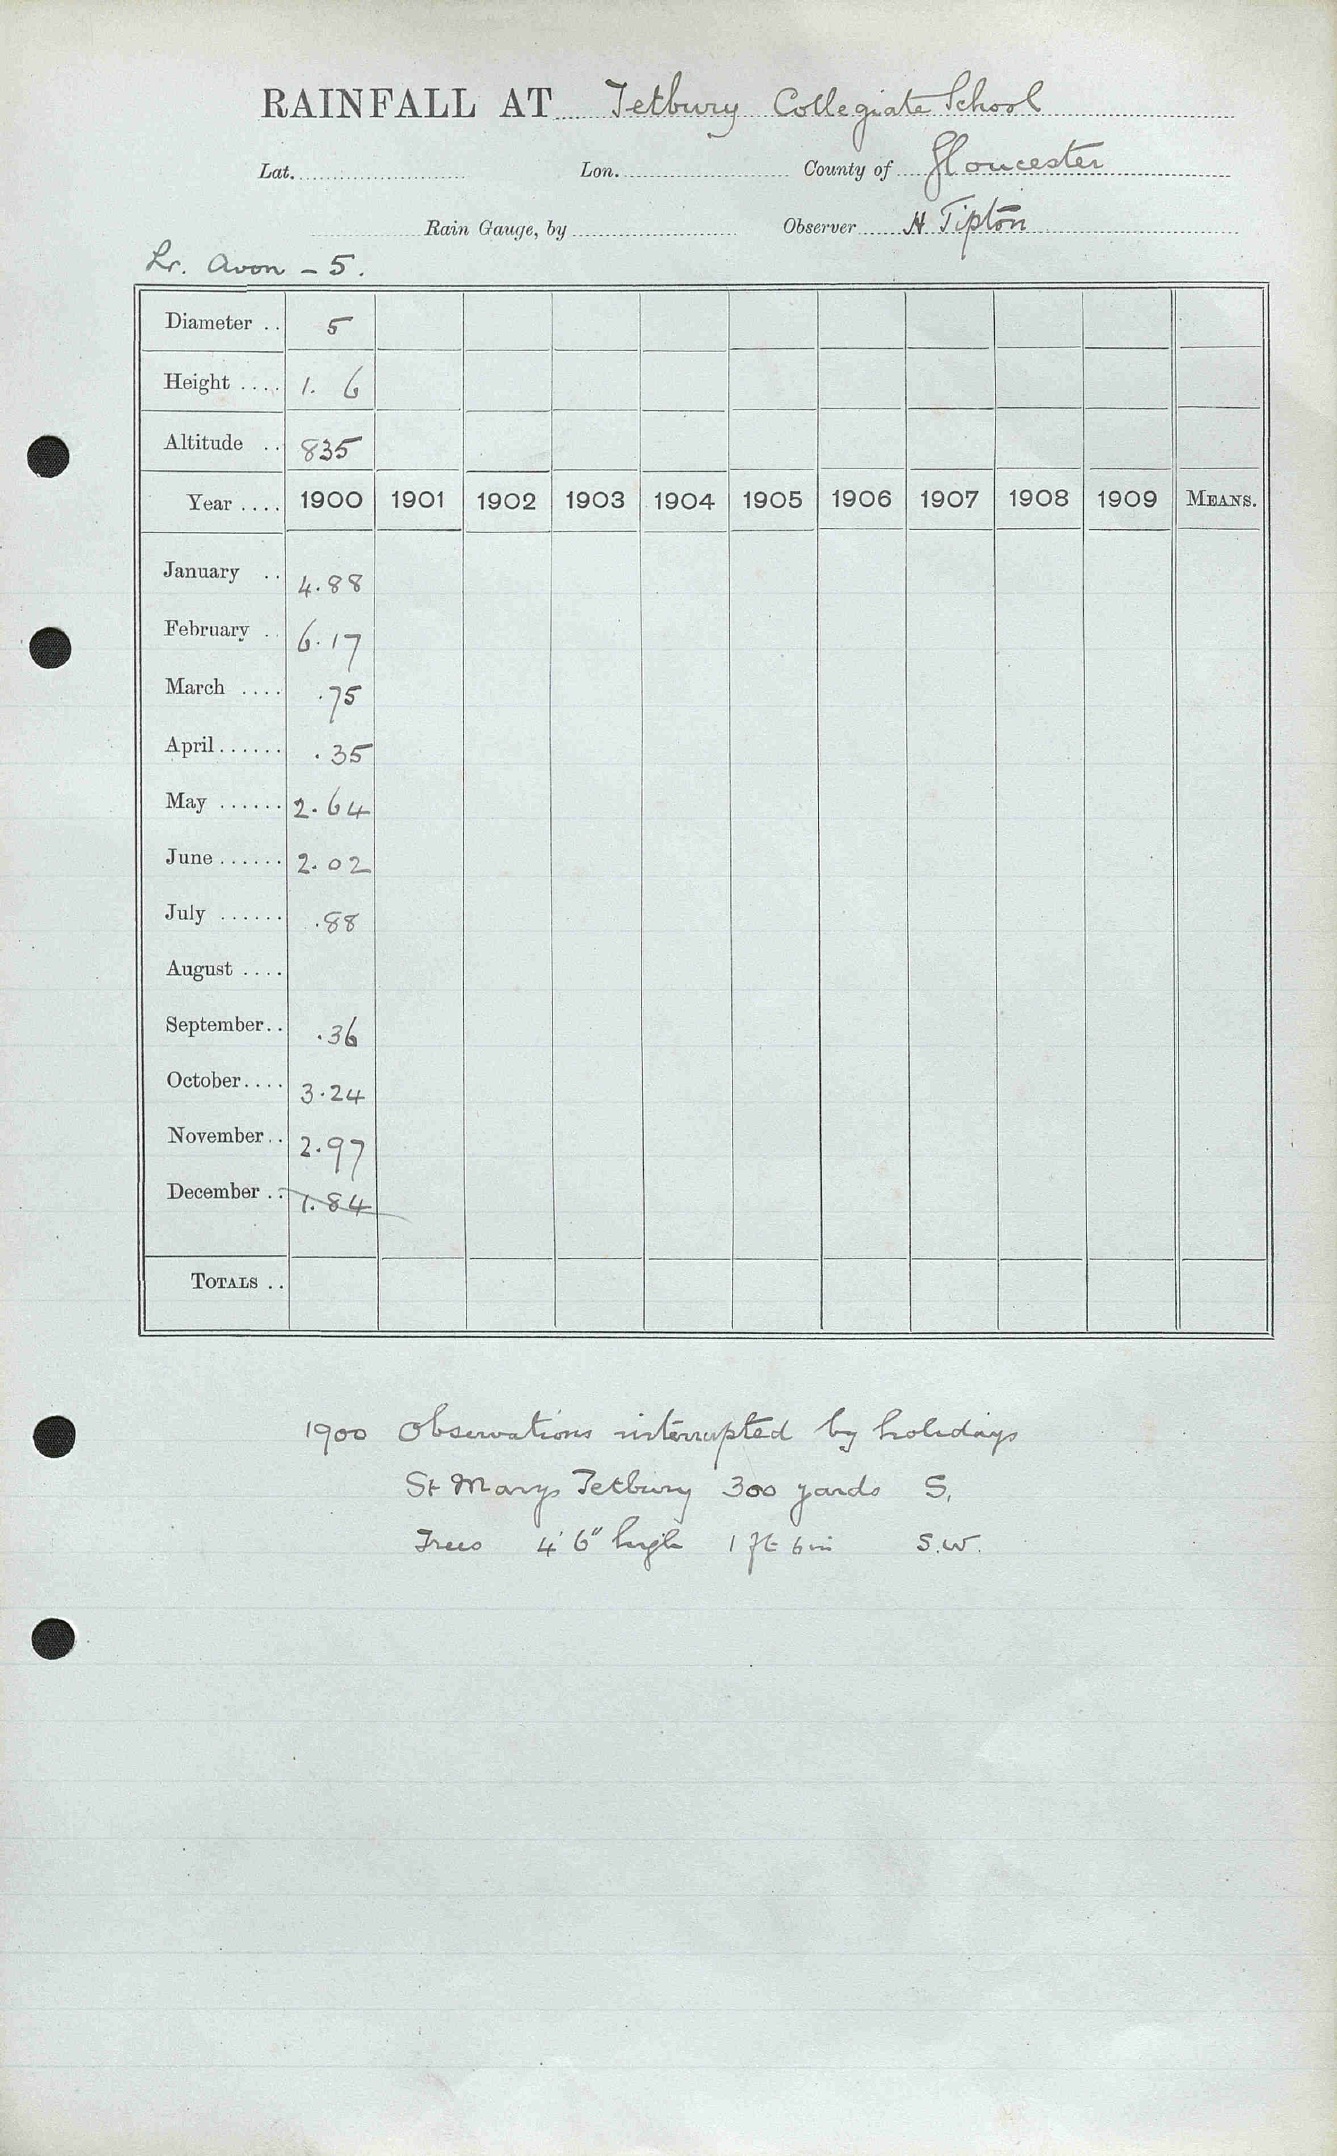 RAINFALL AT Tetbury Collegiate School
Lat. Lon. County of Gloucester
Rain Gauge, by Observer H Tipton
Lr. Avon - 5.
Diameter .. 5
Height .... 1. 6
Altitude .. 835
Year .... 1900 1901 1902 1903 1904 1905 1906 1907 1908 1909 MEANS.
January .. 4.88
February .. 6.17
March .... .75
April ...... .35
May ...... 2.64
June ...... 2.02
July ...... .88
August ....
September .. .36
October .... 3.24
November .. 2.97
December .. 1.84
TOTALS ..
1900 Observations interrupted by holidays
St Marys Tetbury 300 yards S.
Trees 4' 6" high 1 ft 6 in S.W.